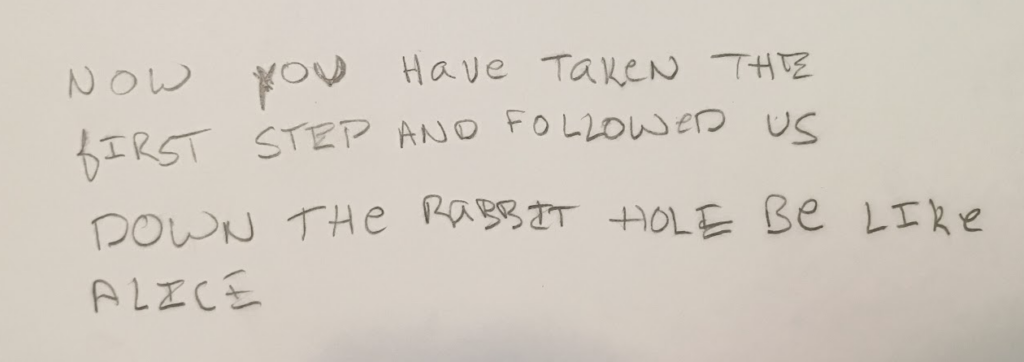 NOW YOU Have TaKeN THE
fIRST STEP AND FOLLOWeD US
DOWN THe RaBBIT HOLE Be LIke
ALICE